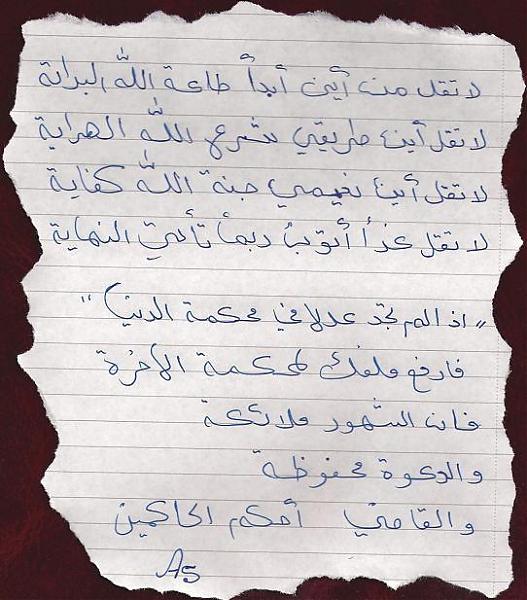 لا تقل من أين أبدأ طاعة الله البداية
لا تقل أين طريقي شرع الله الهداية
لا تقل أين نعيمي جنة الله كفاية
لا تقل غداً أتوب ربما تأتي النهاية
"اذا لم تجد عدلا في محكمة الدنيا"
فارفع ملفك لمحكمة الأخرة
فان الشهود ملائكة
والدعوة محفوظة
والقاضي أحكم الحاكمين
As